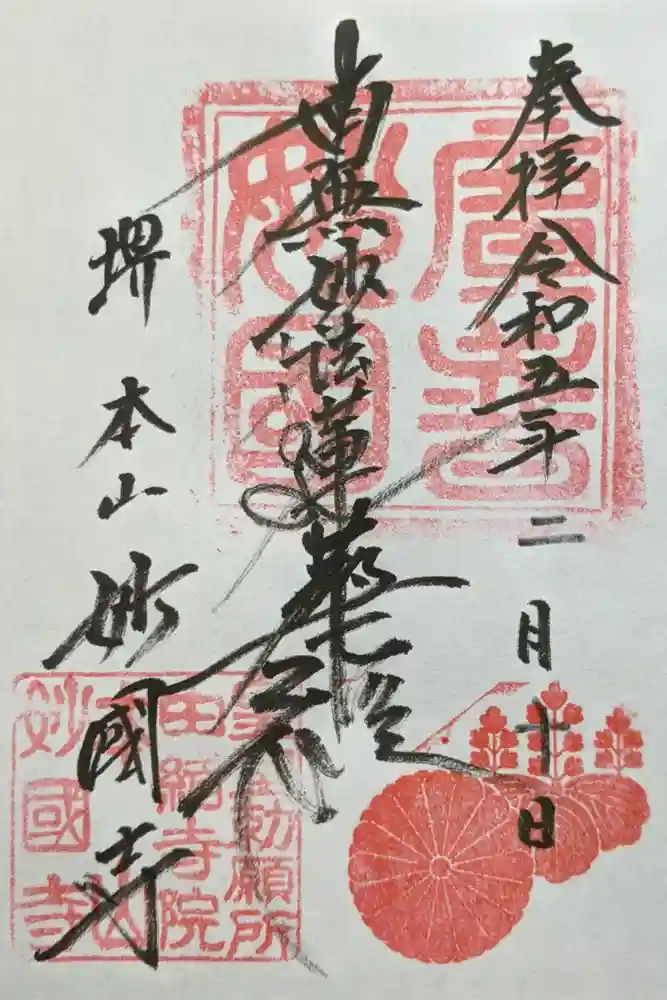 奉拝 令和五年二月十日
南無妙法蓮華経
堺 本山 妙國寺
廣普
妙國
勅願所
寺院
妙國寺